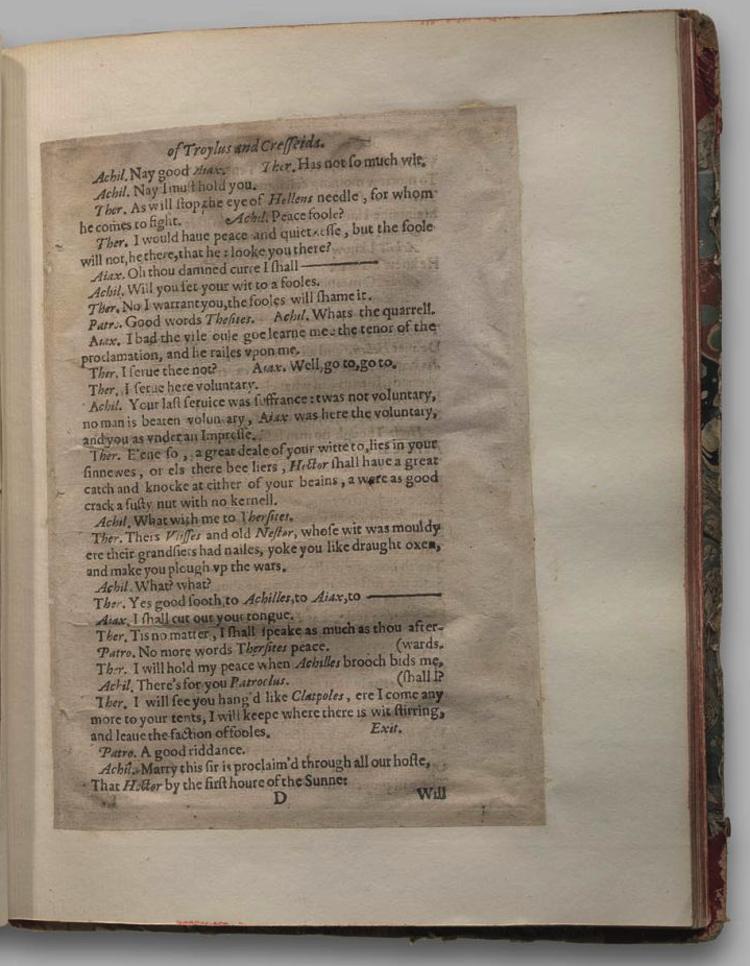 of Troylus and Cresseida.
Achil. Nay good Aiax. Ther. Has not so much wit.
Achil. Nay I must hold you.
Ther. As will stop the eye of Hellens needle, for whom
he comes to fight. Achil. Peace foole?
Ther. I would haue peace and quietnesse, but the foole
will not, he there, that he: looke you there?
Aiax. Oh thou damned curre I shall———
Achil. Will you set your wit to a fooles.
Ther. No I warrant you, the fooles will shame it.
Patro. Good words Thesites. Achil. Whats the quarrell.
Aiax. I bad the vile oule goe learne mee the tenor of the
proclamation, and he railes vpon me.
Ther. I serue thee not? Aiax. Well, go to, go to.
Ther. I serue here voluntary.
Achil. Your last seruice was suffrance: twas not voluntary,
no man is beaten voluntary, Aiax was here the voluntary,
and you as vnder an Impresse.
Ther. E'ene so, a great deale of your witte to, lies in your
sinnewes, or els there bee liers, Hector shall haue a great
catch and knocke at either of your beains, a were as good
crack a fusty nut with no kernell.
Achil. What with me to Thersites.
Ther. Thers Vlisses and old Nestor, whose wit was mouldy
ere their grandsiers had nailes, yoke you like draught oxen,
and make you plough vp the wars.
Achil. What? what?
Ther. Yes good sooth, to Achilles, to Aiax, to ———
Aiax. I shall cut out your tongue.
Ther. Tis no matter, I shall speake as much as thou after-
Patro. No more words Thersites peace. (wards.
Ther. I will hold my peace when Achilles brooch bids me,
Achil. There's for you Patroclus. (shall I?
Ther. I will see you hang'd like Clatpoles, ere I come any
more to your tents, I will keepe where there is wit stirring,
and leaue the faction of fooles. Exit.
Patro. A good riddance.
Achil. Marry this sir is proclaim'd through all our hoste,
That Hector by the first houre of the Sunne:
D Will